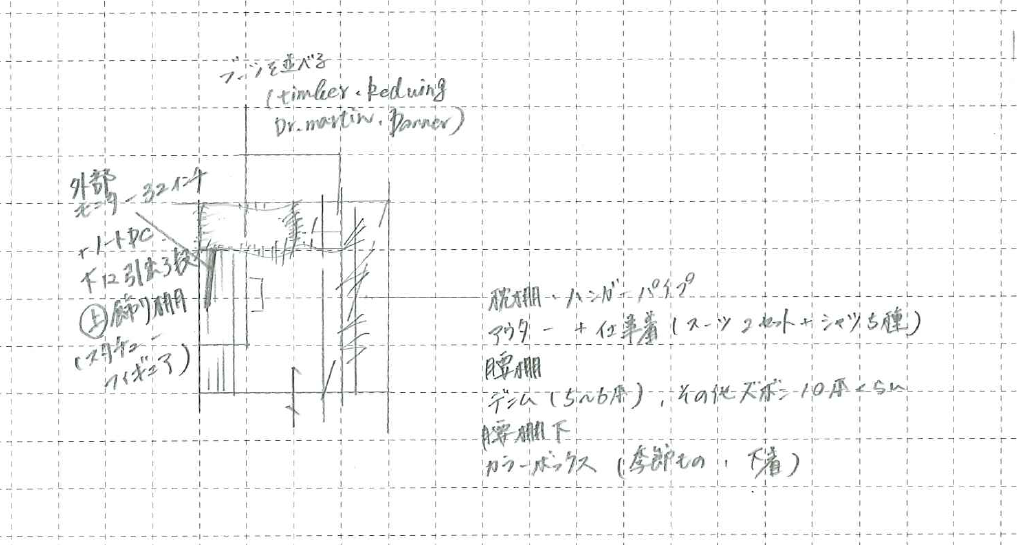 ブーツを並べる
(timber.Redwing
Dr.martin.Danner)
外部
モニター32インチ
+ノートPC
下に引出3段
㊤飾り棚
(スタチュー
フィギュア)
枕棚・ハンガーパイプ
アウター+仕事着(スーツ2セット+シャツ5種)
腰棚
デニム(5~6本),その他ズボン10本くらい
腰棚下
カラーボックス(季節もの,下着)